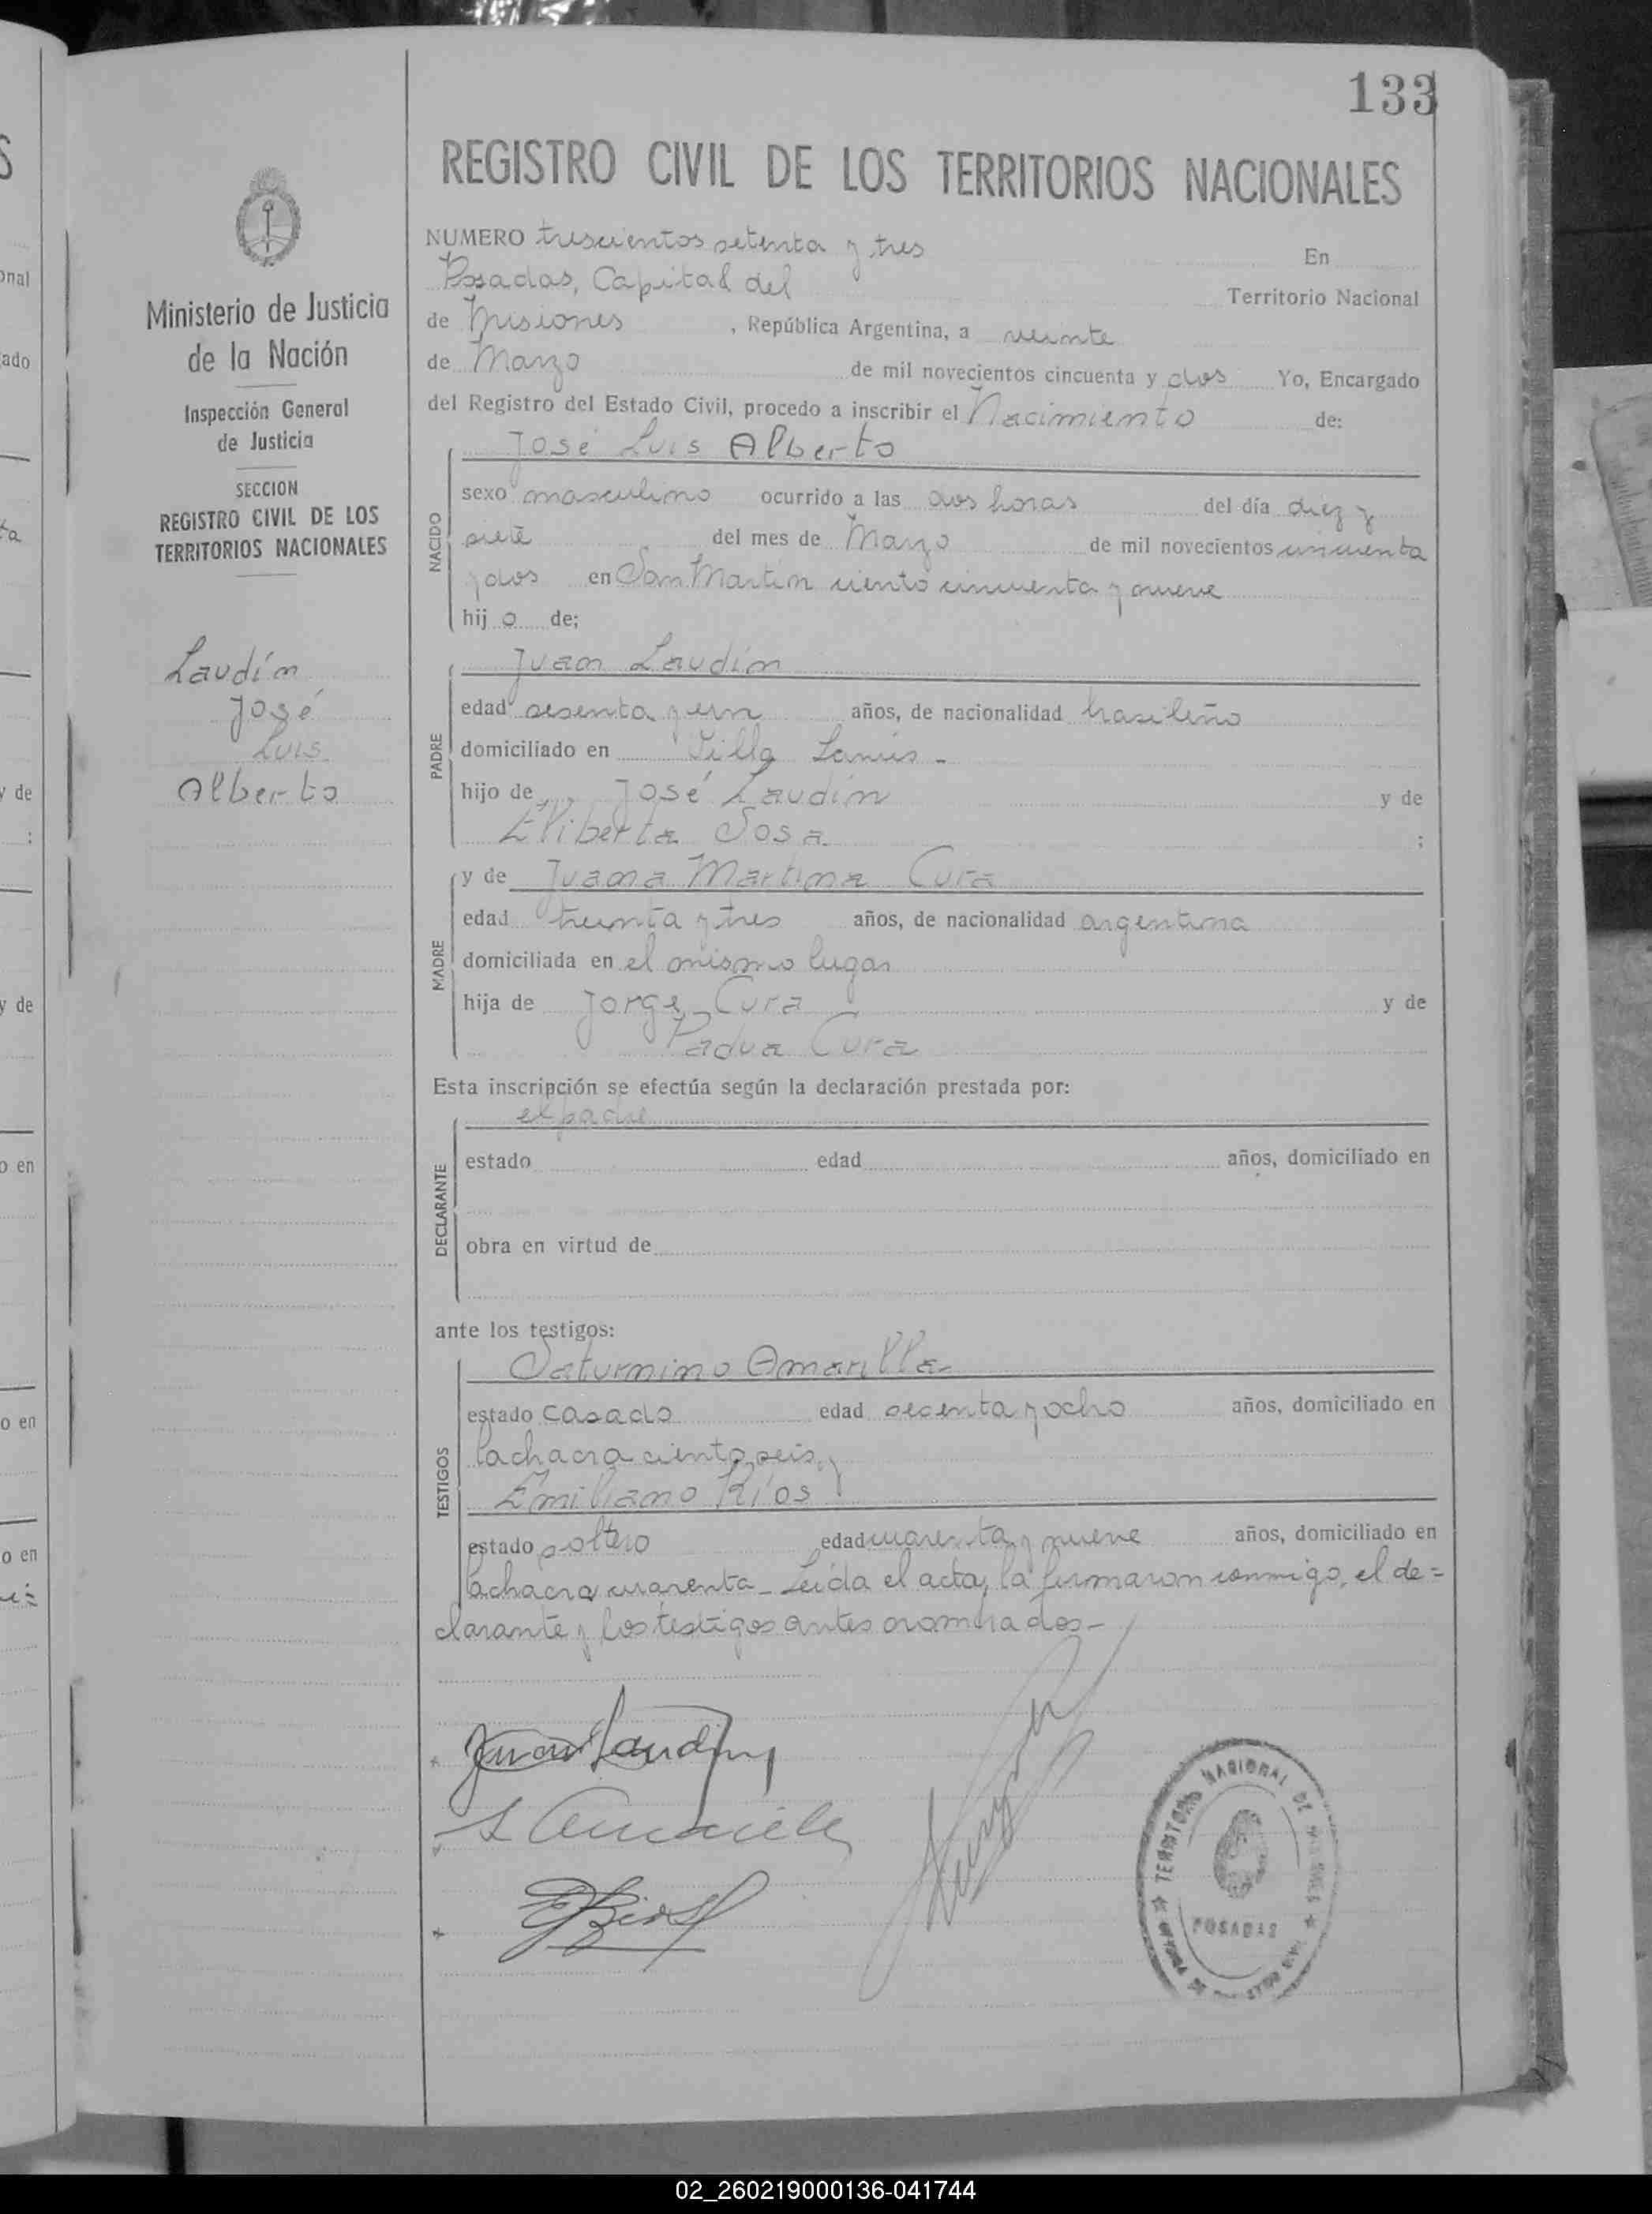 133
REGISTRO CIVIL DE LOS TERRITORIOS NACIONALES
Ministerio de Justicia
de la Nación
Inspección General
de Justicia
SECCION
REGISTRO CIVIL DE LOS
TERRITORIOS NACIONALES
Laudín
José
Luis
Alberto
NUMERO trescientos setenta y tres En
Posadas, Capital del Territorio Nacional
de Misiones , República Argentina, a veinte
de Marzo de mil novecientos cincuenta y dos Yo, Encargado
del Registro del Estado Civil, procedo a inscribir el Nacimiento de:
José Luis Alberto
NACIDO
sexo masculino ocurrido a las dos horas del día diez y
siete del mes de Marzo de mil novecientos cincuenta
y dos en San Martín ciento cincuenta y nueve
hij o de;
Juan Laudín
PADRE
edad sesenta y un años, de nacionalidad brasileño
domiciliado en Villa Lanús -
hijo de José Laudín y de
Eliberta Sosa ;
y de Juana Martina Cura
MADRE
edad treinta y tres años, de nacionalidad argentina
domiciliada en el mismo lugar
hija de Jorge Cura y de
Padua Cura
Esta inscripción se efectúa según la declaración prestada por:
el padre
DECLARANTE
estado edad años, domiciliado en
obra en virtud de
ante los testigos:
Saturnino Amarilla
TESTIGOS
estado casado edad sesenta y ocho años, domiciliado en
la chacra ciento seis, y
Emiliano Ríos
estado soltero edad cuarenta y nueve años, domiciliado en
la chacra cuarenta - Leída el acta, la firmaron conmigo, el de=
clarante y los testigos antes nombrados -
Juan Laudín
S Amarilla
E Rios
TERRITORIO NACIONAL DE MISIONES
POSADAS
onal
ado
ta
y de
:
y de
o en
o en
o en
02_260219000136-041744